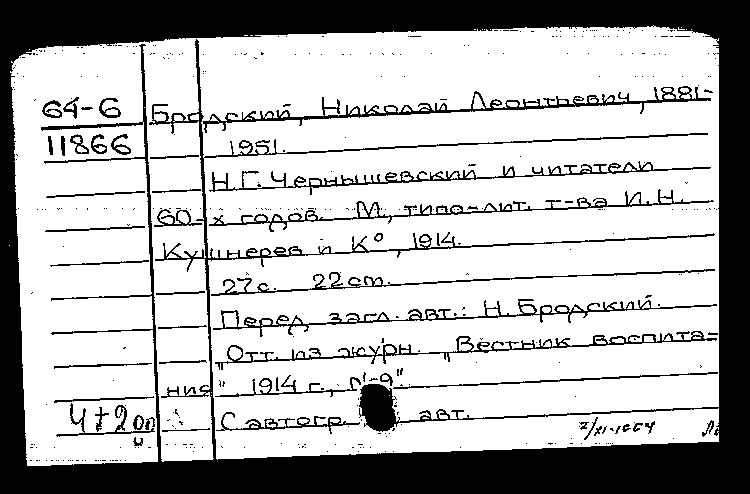 64-6 Бродский, Николай Леонтьевич, 1881-
11866 1951.
Н.Г. Чернышевский и читатели
60-х годов. М., типо-лит. т-ва И.Н.
Кушнерев и К°, 1914.
27с. 22см.
Перед загл. авт.: Н. Бродский.
„Отт. из журн. „Вестник воспита=
ния", 1914 г., №9"
С автогр. авт.